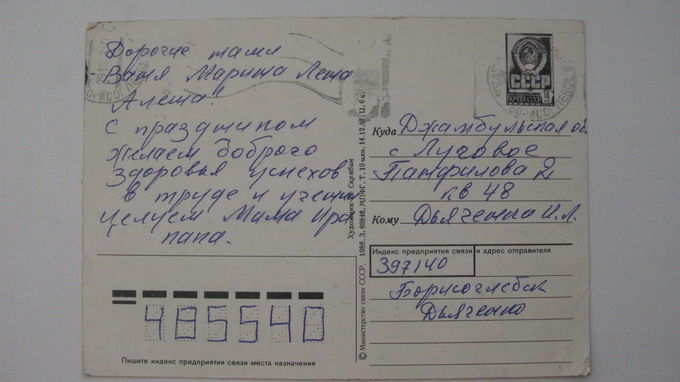 Дорогие мами
Ваня Марина Лена
Алеша!
С праздником
желаем доброго
здоровья успехов
в труде и учении
целуем Мама Ира
папа.
Художник А. Скрябин
© Министерство связи СССР. 1988. З. 88846. МПФГ. Т. 10 млн. 14.12.87. Ц. 6 к.
СССР
Куда Джамбульская об.
с Луговое
Панфилова 2
кв 48
Кому Дьяченко И.Л.
Индекс предприятия связи и адрес отправителя
397140
Борисоглебск
Дьяченко
485540
Пишите индекс предприятия связи места назначения